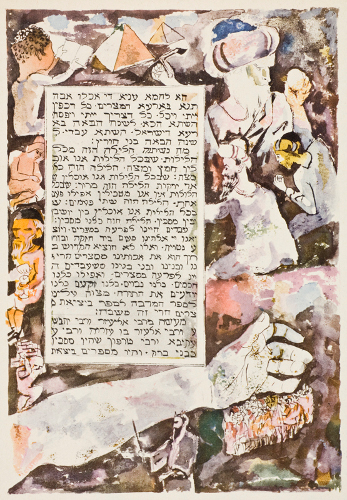 הא לחמא עניא. די אכלו אבה
תנא בארעא דמצרים. כל דכפין
ייתי ויכל. כל דצריך ייתי ויפסח
השתא הכא. לשנה הבאה בא
רעא דישראל. השתא עבדי. ל
שנה הבאה בני חורין:
מה נשתנה הלילה הזה מכל
הלילות. שבכל הלילות אנו אוכ
לין חמץ ומצה. הלילה הזה כלו
מצה: שבכל הלילות אנו אוכלין ש
אר ירקות הלילה הזה מרור: שבכל
הלילות אין אנו מטבילין אפילו פעם
אחת. הלילה הזה שתי פעמים: ש
בכל הלילות אנו אוכלין בין יושבין
ובין מסבין. הלילה הזה כלנו מסבין:
עבדים היינו לפרעה במצרים. ויוצ
יאנו יי אלהינו משם ביד חזקה ובזרו
ע נטויה. ואלו לא הוציא הקדוש ב
רוך הוא את אבותינו ממצרים הרי א
נו ובנינו ובני בנינו משעבדים ה
יינו לפרעה במצרים. ואפילו כלנו
חכמים. כלנו נבונים. כלנו זקנים כלנו
יודעים את התורה. מצוה עלינו
לספר המרבה לספר ביציאת מ
צרים הרי זה משובח:
מעשה ברבי אליעזר ורבי יהוש
ע ורבי אלעזר בן עזריה ורבי ע
קיבא ורבי טרפון שהיו מסבין
בבני ברק והיו מספרים ביציא